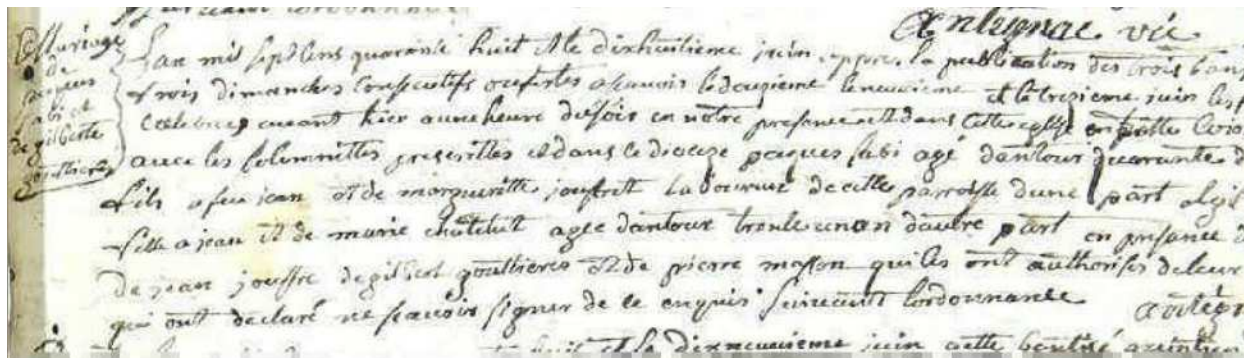 suivant lordonnance
Antignac vic
Mariage
de
jacques
fabi et
de gilberte
gouttieres
Lan mil sept cens quarante huit et le dixhuitieme juin, appres la publication des trois bans
trois dimanches consecutifs ou festes a scavoir le deuzieme le neuvieme et le trezieme juin les f
celebrees avant hier a une heure du soir en notre presance et dans cette eglise
avec les solemnittes prescrittes et dans ce dioceze jacques fabi agé dantour quarante
fils a feu jean et de margueritte jouffret laboureur de cette parroisse dune part et gil
fille a jean et de marie chatelut agee dantour trente un an dautre part en presance
de jean jouffre de gilbert gouttieres et de pierre masson qui les ont authorisés de leur
qui ont declaré ne scavoir signer de ce enquis suivant lordonnance
huit et le dixneuvieme juin